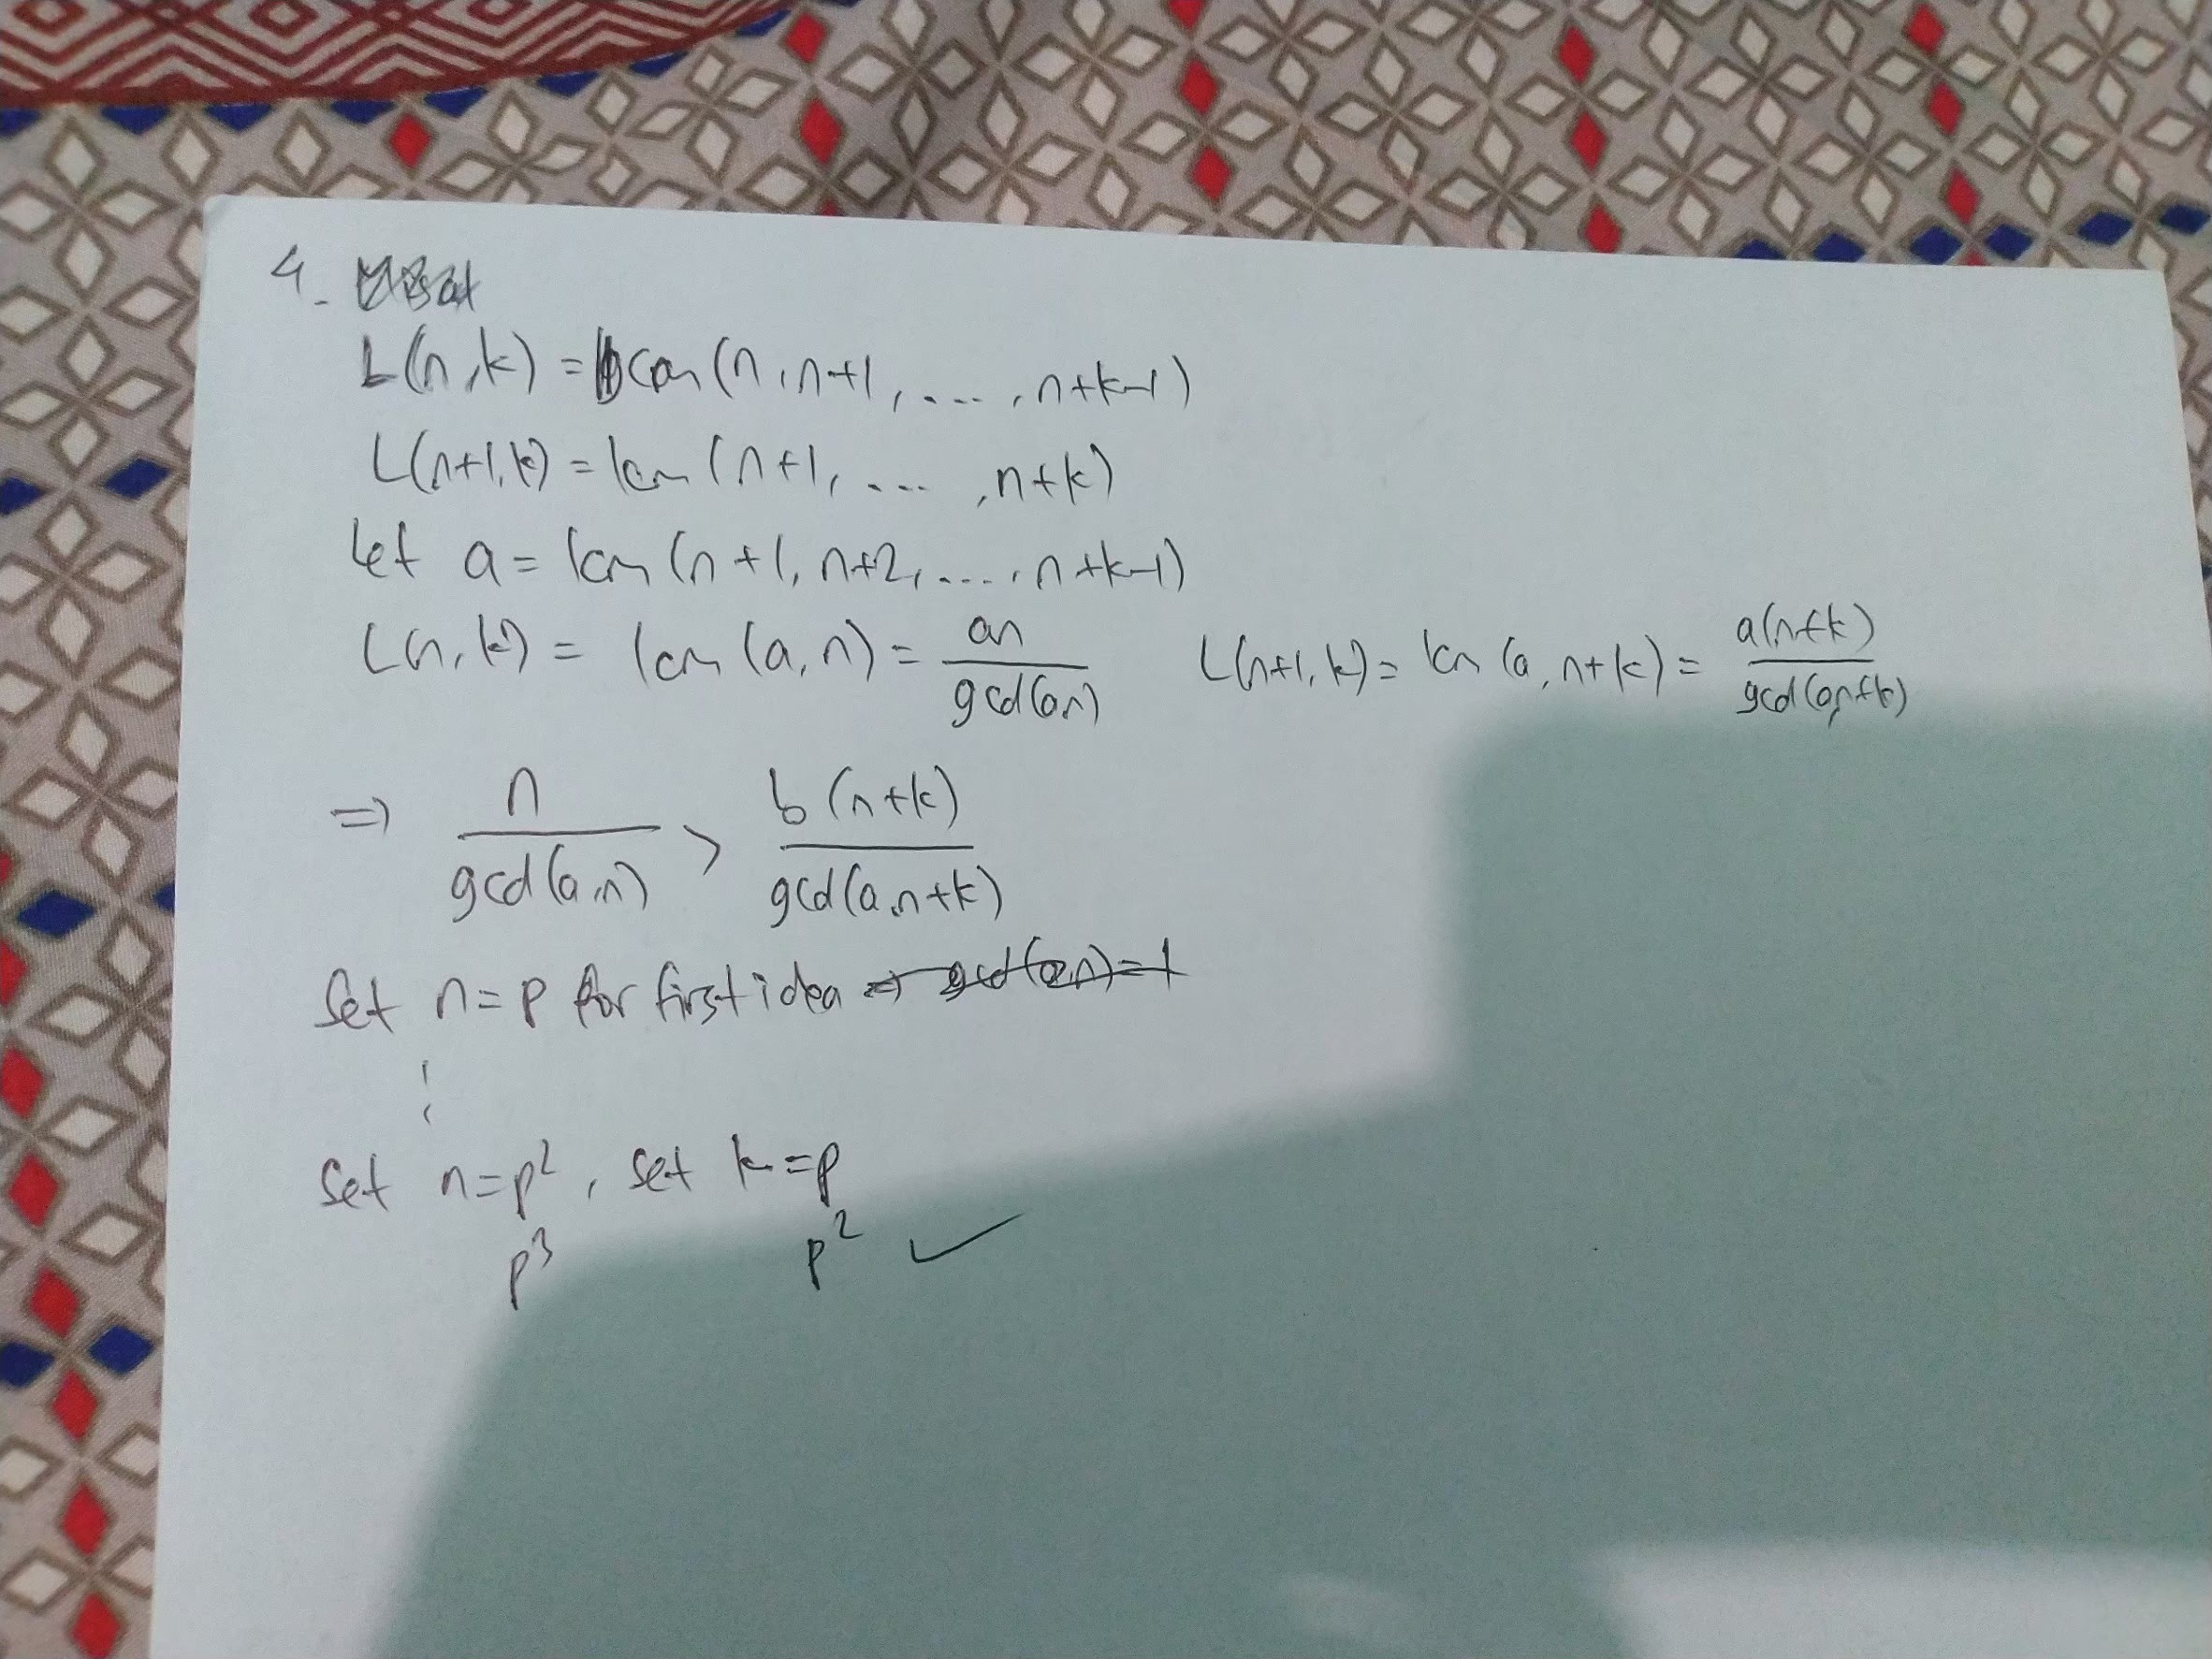 4.
L(n,k) = lcm (n, n+1, ...., n+k-1)
L(n+1,k) = lcm (n+1, ...., n+k)
Let a = lcm (n+1, n+2, ...., n+k-1)
L(n,k) = lcm (a,n) = an/gcd(a,n) L(n+1,k) = lcm (a, n+k) = a(n+k)/gcd(a,n+k)
=> n/gcd(a,n) > b(n+k)/gcd(a,n+k)
Set n=p for first idea => gcd(a,n)=1
⋮
Set n=p², set k=p
p³ p² ✓